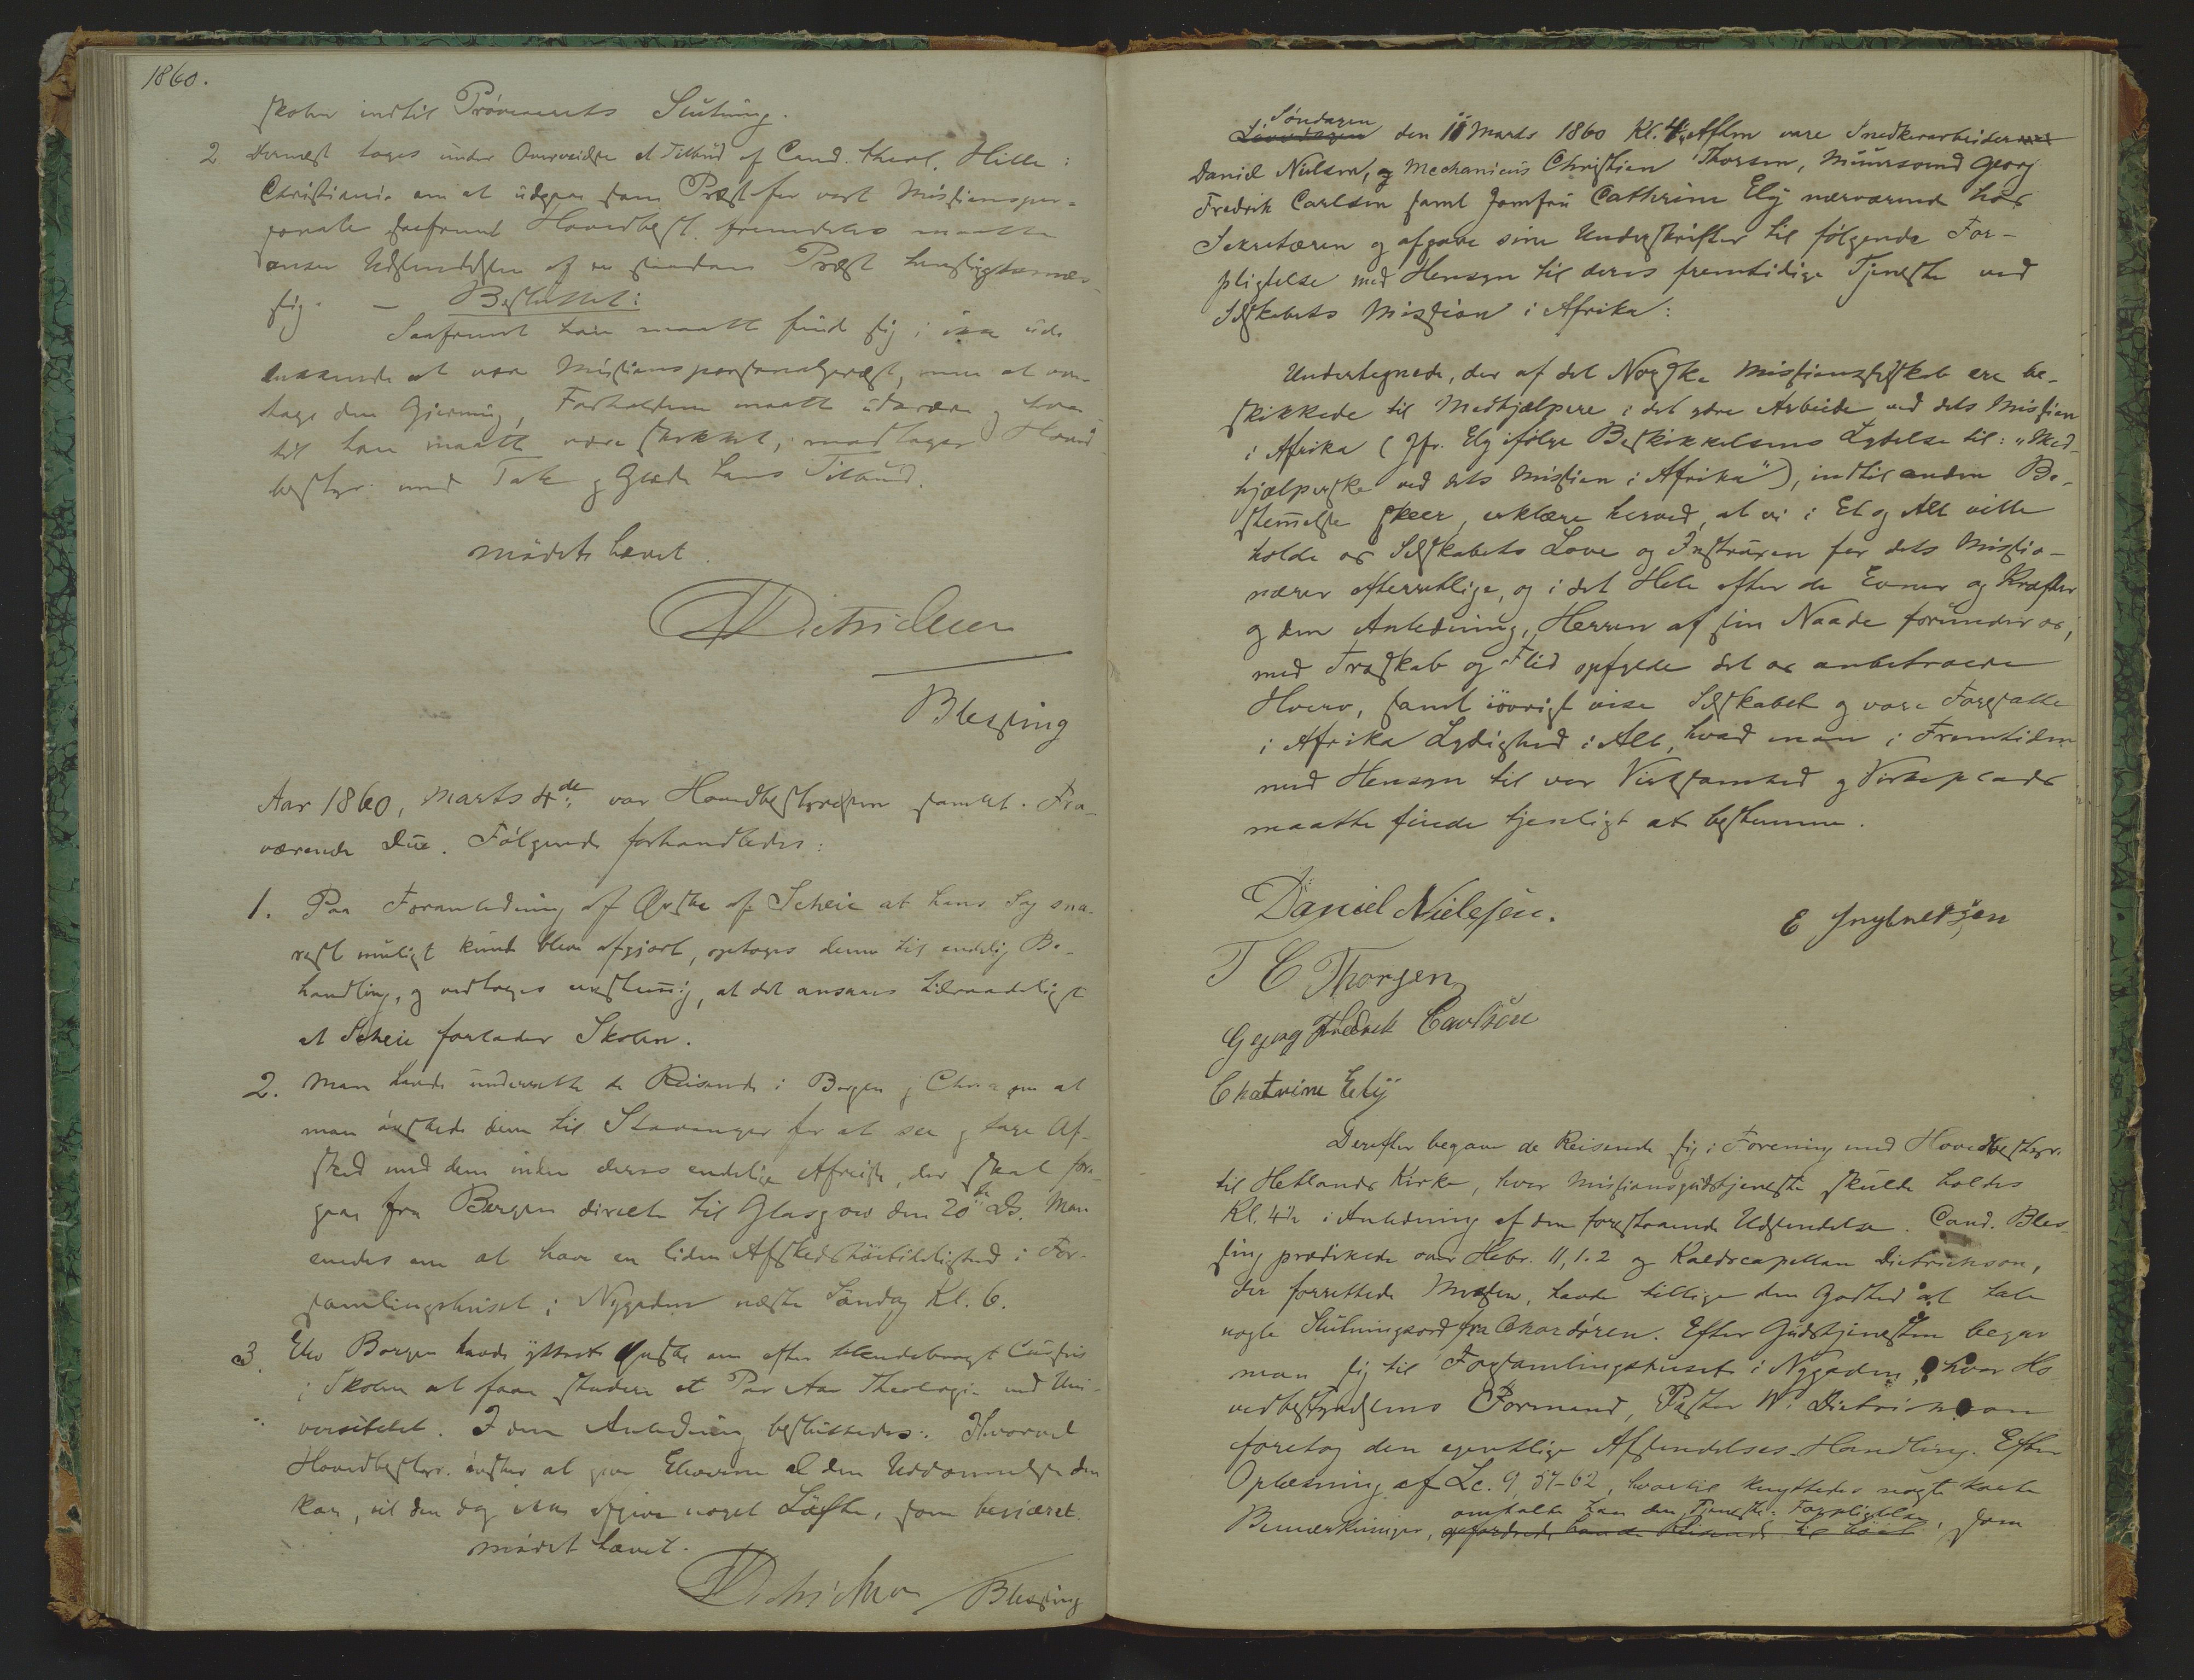 1860.
skolen indtil Prøveaarets Slutning.
2 Dernæst toges under Overveielse et Tilbud af Cand. theol. Hille i
Christiania om at udgaae som Præst for vort Missionsper-
sonale saafremt Hovedbest. fremdeles maatte
ansee Udsendelsen af en saadan Præst hensigtsmæs-
sig. — Besluttet:
Saafremt han maatte finde sig i ikke ude
lukkende at være Missionspersonalpræst, men at over
tage den Gjerning, Forholdene maatte udkræve og hvor
til han maatte være skikket, modtager Hoved
bestyr. med Tak og Glæde hans Tilbud.
Mødet hævet.
Dietrichson
Blessing
Aar 1860, Marts 4de var Hovedbestyrelsen samlet. Fra-
værende Due. Følgende forhandledes:
1. Paa Foranledning af Ønske af Scheie at hans Sag sna-
rest muligt kunde blive afgjort, optoges denne til endelig Be-
handling, og vedtoges eenstemig, at det ansees tilraadeligt
at Scheie forlader Skolen.
2. Man havde underrettet de Reisende i Bergen og Chria om at
man ønskede dem til Stavanger for at see og tage Af-
sked med dem inden deres endelige Afreise, der skal fore-
gaae fra Bergen directe til Glasgow den 20de Ds. Man
enedes om at have en liden Afskedshøitidelighed i For-
samlingshuset i Nygaden næste Søndag Kl. 6.
3. Elev Borgen havde yttret Ønske om efter tilendebragt Cursus
i Skolen at faae studere et Par Aar Theologie ved Uni-
versitetet. I den Anledning besluttedes: Hvorvel
Hovedbestyr. ønsker at give Eleverne al den Uddannelse den
kan, vil den dog ikke afgive noget Løfte, som begjæret.
Mødet hævet.
Dietrichson Blessing
Søndagen
Løverdagen den 11 Marts 1860 Kl. 4 Aftm vare Snedkerarbeider
Daniel Nielsen, og Mechanicus Christian Thorsen, Muursvend Georg
Fredrik Carlsen samt Jomfru Cathrine Ely nærværende hos
Sekretæren og afgave sine Underskrifter til følgende For-
pligtelse med Hensyn til deres fremtidige Tjeneste ved
Selskabets Mission i Afrika:
Undertegnede, der af det Norske Missionsselskab ere be-
skikkede til Medhjælpere i det ydre Arbeide ved dets Mission
i Afrika (Jfr. Ely ifølge Beskikkelsens Lydelse til: "Med-
hjælperske ved dets Mission i Afrika"), indtil anden Be-
stemelse skeer, erklære herved, at vi i Et og Alt ville
holde os Selskabets Love og Instruxen for dets Missio-
nærer efterrettlige, og i det Hele efter de Evner og Kræfter
og den Anledning, Herren af sin Naade forunder os,
med Troskab og Flid opfylde det os anbetroede
Hverv, samt iøvrigt vise Selskabet og vore Foresatte
i Afrika Lydighed i Alt, hvad man i Fremtiden
med Hensyn til vor Virksomhed og Virkeplads
maatte finde tjenligt at bestemme.
Daniel Nielsen. E Ingebretsen
T C Thorsen
Georg Fredrik Carlsen
Chatrine Ely
Derefter begave de Reisende sig i Forening med Hovedbestyr.
til Hetlands Kirke, hvor Missionsgudstjeneste skulde holdes
Kl. 4½ i Anledning af den forestaaende Udsendelse. Cand. Bles-
sing prædikede over Hebr. 11, 1.2 og Kaldscapellan Dietrichson,
der forrettede Messen, havde tillige den Godhed at tale
nogle Slutningsord fra Chordøren. Efter Gudstjenesten begav
man sig til Forsamlingshuset i Nygaden, hvor Ho
vedbestyrelsens Formand, Pastor W. Dietrichson
foretog den egentlige Afsendelses-Handling. Efter
Oplæsning af Lc. 9, 57-62, hvortil knyttedes nogle korte
omtalte han den Tjeneste-Forpligtelse
Bemærkninger, opfordrede han de Reisende til høit , som